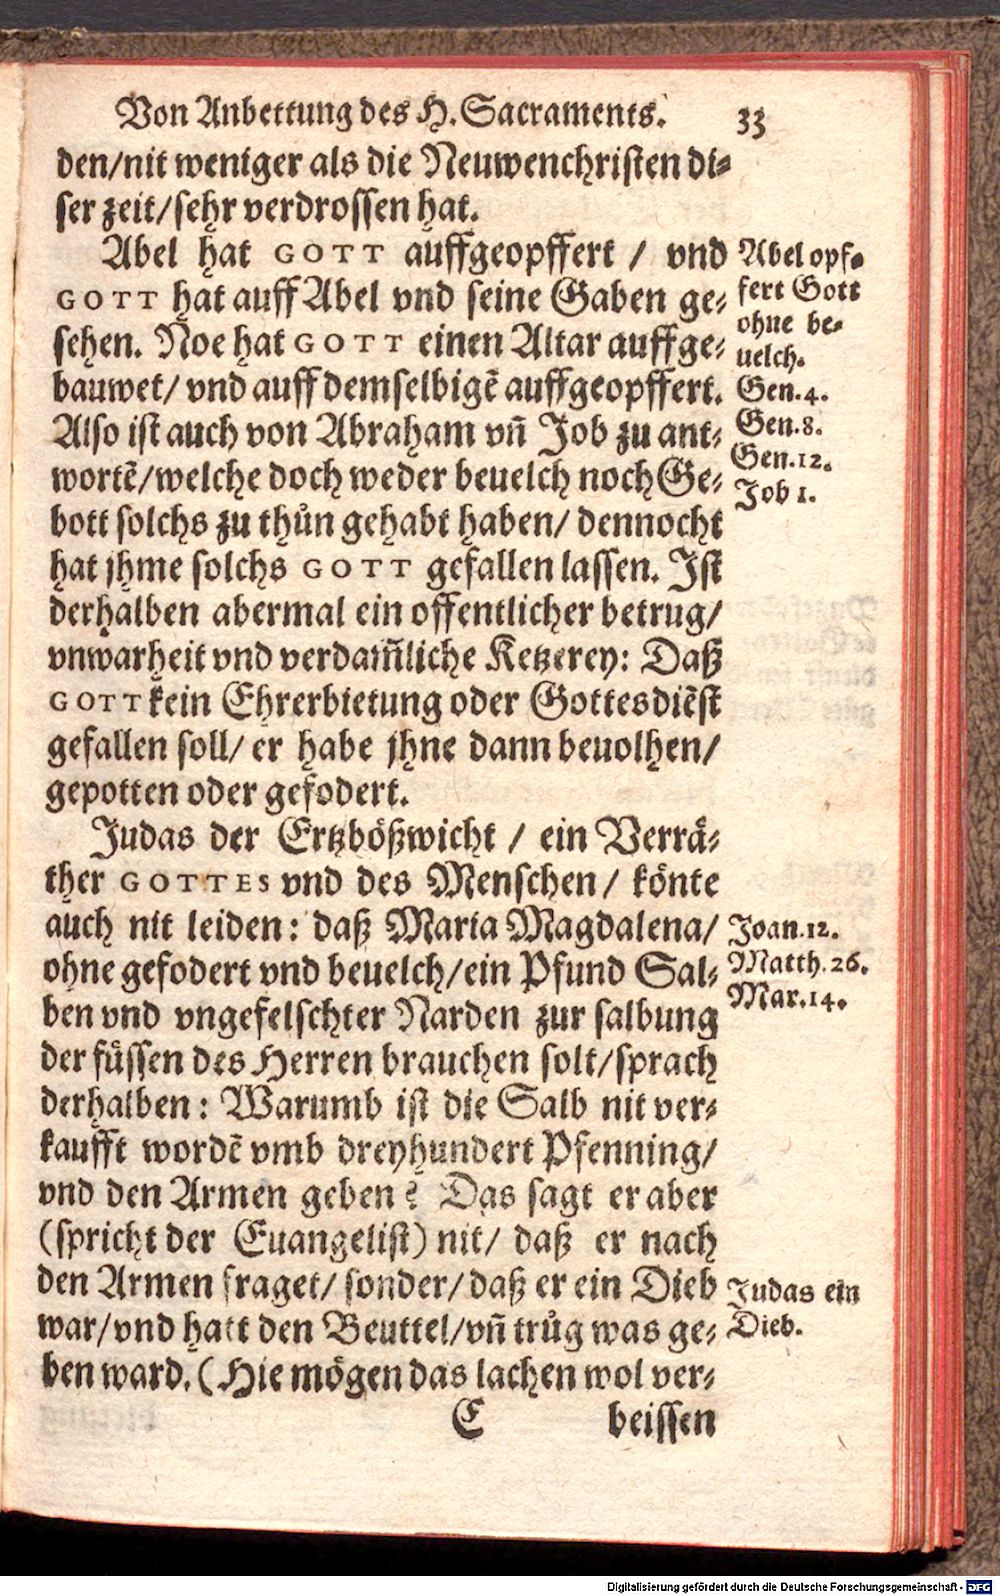 Von Anbettung des H. Sacraments. 33
den/nit weniger als die Neuwenchristen di-
ser zeit/sehr verdrossen hat.
Abel hat GOTT auffgeopffert / vnd
GOTT hat auff Abel vnd seine Gaben ge-
sehen. Noe hat GOTT einen Altar auffge-
bauwet/ vnd auff demselbigē auffgeopffert.
Also ist auch von Abraham vñ Job zu ant-
wortē/welche doch weder beuelch noch Ge-
bott solchs zu thůn gehabt haben/ dennocht
hat jhme solchs GOTT gefallen lassen. Ist
derhalben abermal ein offentlicher betrug/
vnwarheit vnd verdam̃liche Ketzerey: Daß
GOTT kein Ehrerbietung oder Gottesdiēst
gefallen soll/ er habe jhne dann beuolhen/
gepotten oder gefodert.
Judas der Ertzbößwicht / ein Verrä-
ther GOTTES vnd des Menschen/ könte
auch nit leiden: daß Maria Magdalena/
ohne gefodert vnd beuelch/ein Pfund Sal-
ben vnd vngefelschter Narden zur salbung
der füssen des Herren brauchen solt/sprach
derhalben: Warumb ist die Salb nit ver-
kaufft wordē vmb dreyhundert Pfenning/
vnd den Armen geben? Das sagt er aber
(spricht der Euangelist) nit/ daß er nach
den Armen fraget/ sonder/daß er ein Dieb
war/vnd hatt den Beuttel/vñ trůg was ge-
ben ward. (Hie mögen das lachen wol ver-
E beissen
Abel opf-
fert Gott
ohne be-
uelch.
Gen.4.
Gen.8.
Gen.12.
Job 1.
Joan.12.
Matth.26.
Mar.14.
Judas ein
Dieb.
Digitalisierung gefördert durch die Deutsche Forschungsgemeinschaft - DFG